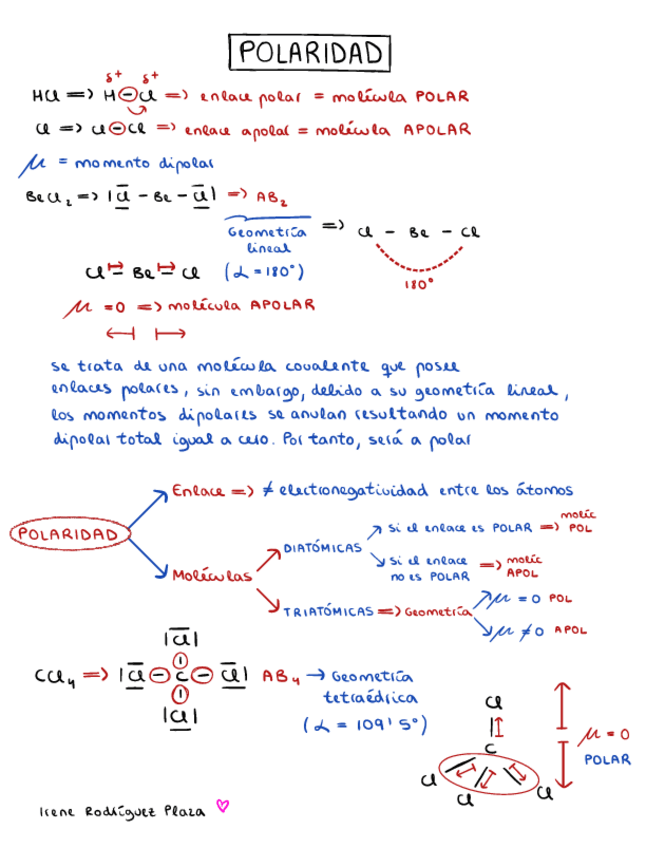 POLARIDAD
δ+ δ+
HCl => H-Cl => enlace polar = molécula POLAR
Cl => Cl-Cl => enlace apolar = molécula APOLAR
μ = momento dipolar
BeCl₂ => |Cl - Be - Cl| => AB₂
Geometría lineal (α = 180°) => Cl - Be - Cl
180°
Cl Be Cl
μ = 0 => molécula APOLAR
se trata de una molécula covalente que posee
enlaces polares, sin embargo, debido a su geometría lineal,
los momentos dipolares se anulan resultando un momento
dipolar total igual a cero. Por tanto, será a polar
POLARIDAD
Enlace => ≠ electronegatividad entre los átomos
Moléculas
DIATÓMICAS
si el enlace es POLAR => moléc POL
si el enlace no es POLAR => moléc APOL
TRIATÓMICAS => Geometría
μ = 0 POL
μ ≠ 0 APOL
|Cl|
CCl₄ => |Cl - C - Cl| AB₄ → Geometría
tetraédrica
|Cl|
(α = 109'5°)
Cl
C
Cl Cl Cl
μ = 0
POLAR
Irene Rodríguez Plaza